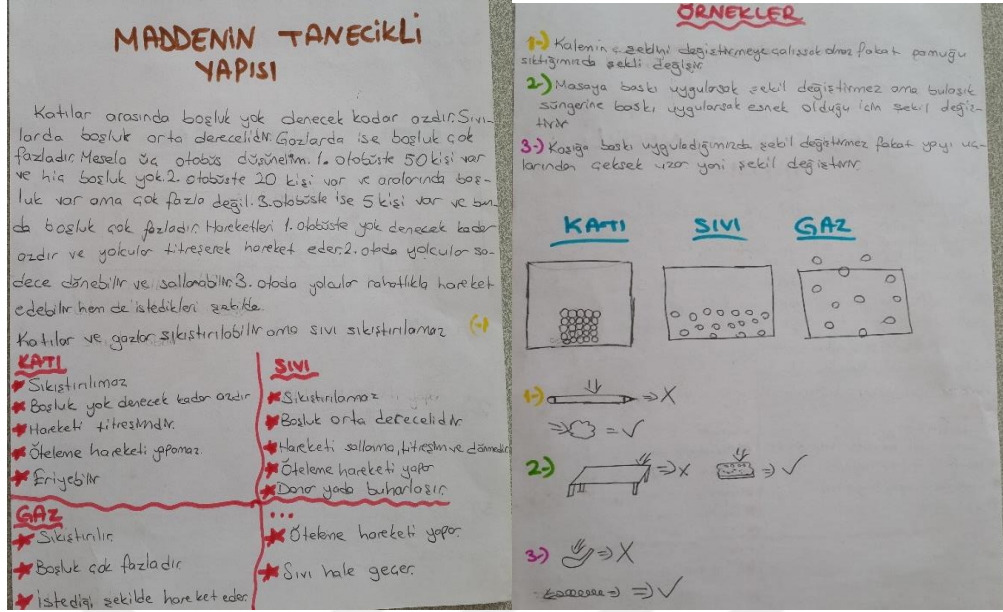 MADDENİN TANECİKLİ
YAPISI
Katılar arasında boşluk yok denecek kadar azdır. Sıvı-
larda boşluk orta derecelidir. Gazlarda ise boşluk çok
fazladır. Mesela üç otobüs düşünelim. 1. otobüste 50 kişi var
ve hiç boşluk yok. 2. otobüste 20 kişi var ve aralarında boş-
luk var ama çok fazla değil. 3. otobüste ise 5 kişi var ve bun-
da boşluk çok fazladır. Hareketleri 1. otobüste yok denecek kadar
azdır ve yolcular titreşerek hareket eder. 2. otoda yolcular sa-
dece dönebilir ve sallanabilir. 3. otoda yolcular rahatlıkla hareket
edebilir hem de istedikleri şekilde.
Katılar ve gazlar sıkıştırılabilir ama sıvı sıkıştırılamaz
KATI
* Sıkıştırılmaz
* Boşluk yok denecek kadar azdır
* Hareketi titreşimdir.
* Öteleme hareketi yapamaz.
* Eriyebilir
SIVI
* Sıkıştırılamaz
* Boşluk orta derecelidir.
* Hareketi sallanma, titreşim ve dönmedir
* Öteleme hareketi yapar
* Donar yada buharlaşır.
GAZ
* Sıkıştırılır.
* Boşluk çok fazladır
* İstediği şekilde hareket eder.
...
* Öteleme hareketi yapar.
* Sıvı hale geçer.
ÖRNEKLER
1-) Kalemin şeklini değiştirmeye çalışsak olmaz fakat pamuğu
sıktığımızda şekli değişir.
2-) Masaya baskı uygularsak şekil değiştirmez ama bulaşık
süngerine baskı uygularsak esnek olduğu için şekil değiş-
tirir
3-) Kaşığa baskı uyguladığımızda şekil değiştirmez fakat yayı uç-
larından çeksek uzar yani şekil değiştirir.
KATI SIVI GAZ
1-)
2-)
3-)